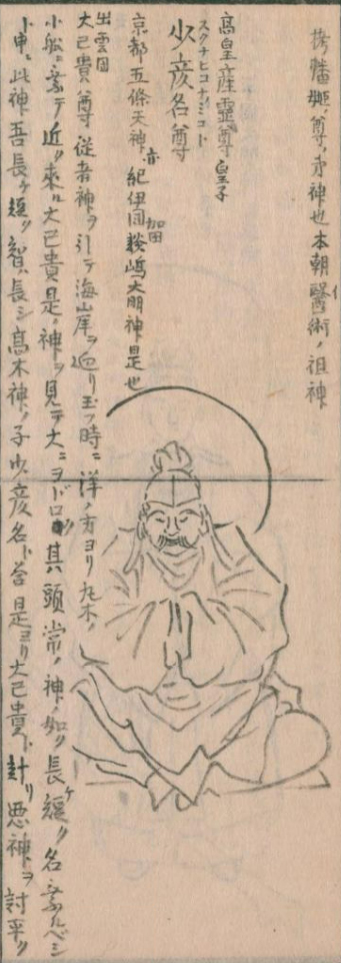 栲幡姫ノ尊ノ弟神也本朝醫術ノ祖神
高皇産霊尊ノ皇子
スクナヒコナノミコト
少彦名尊
京都五條天神亦紀伊国加田鋖嶋大明神是也
出雲国
大己貴尊従者神ヲ引テ海山岸ヲ廻リ玉フ時ニ洋ノ方ヨリ丸木ノ
小船ニ乗テ近ク来ル大己貴是ノ神ヲ見テ大ニヲドロキ其頭常ノ神ノ如ク長ケ短ク名乗ルベシ
ト申ニ此神吾長ケ短ク智ハ長シ髙木神ノ子少彦名ト答是ヨリ大己貴ト計リ悪神トヲ討平ク